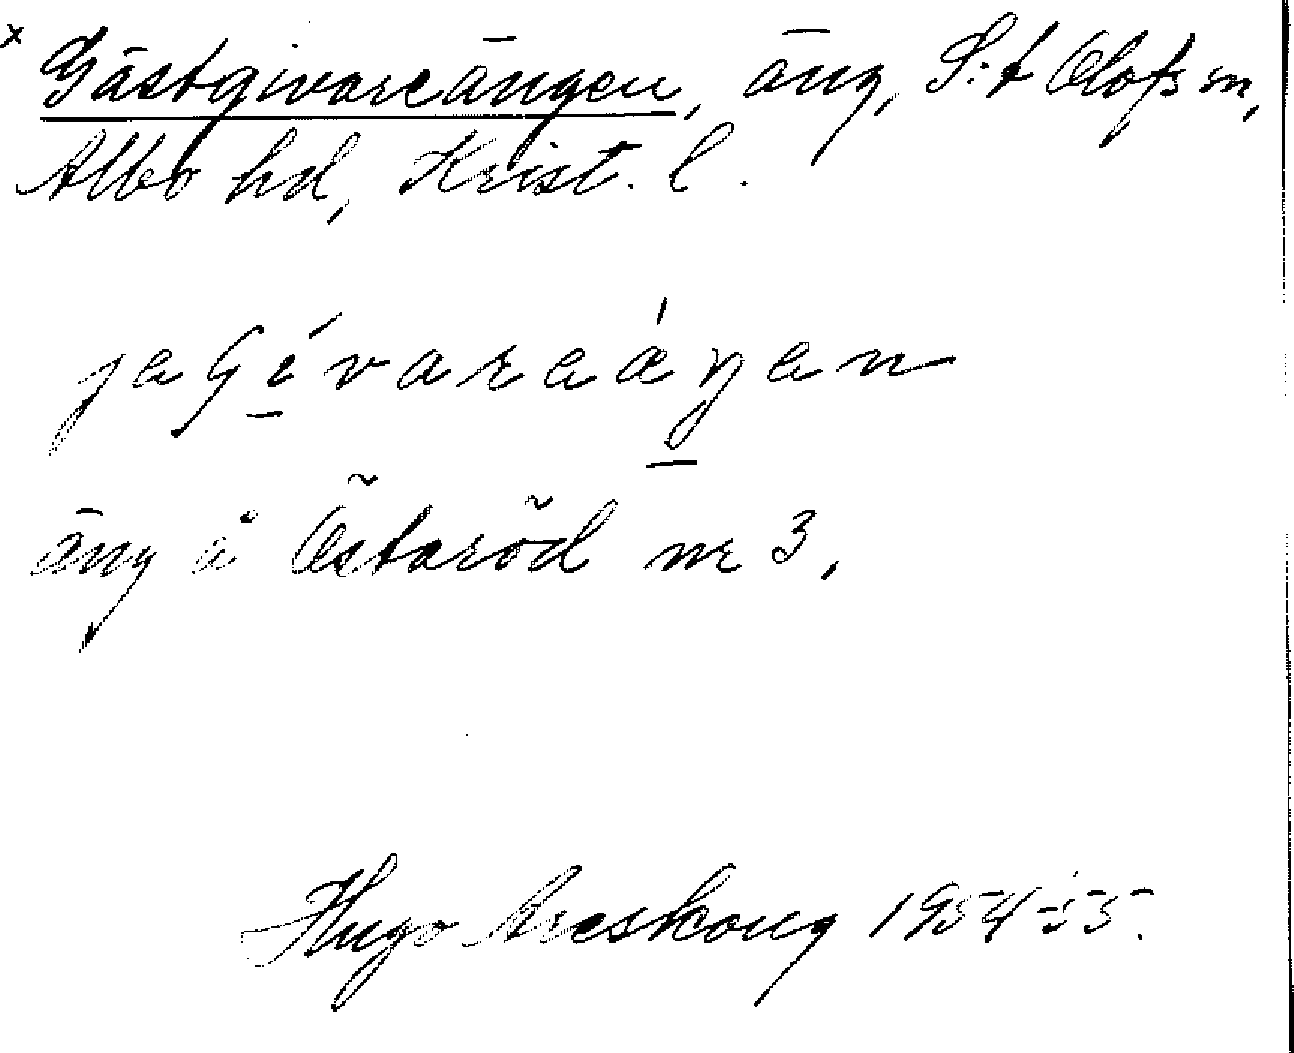 x Gästgivareängen, äng, S:t Olofs sn,
Albo hd, Krist. l.
äng å Östaröd nr 3.
Hugo Areskoug 1954-55.